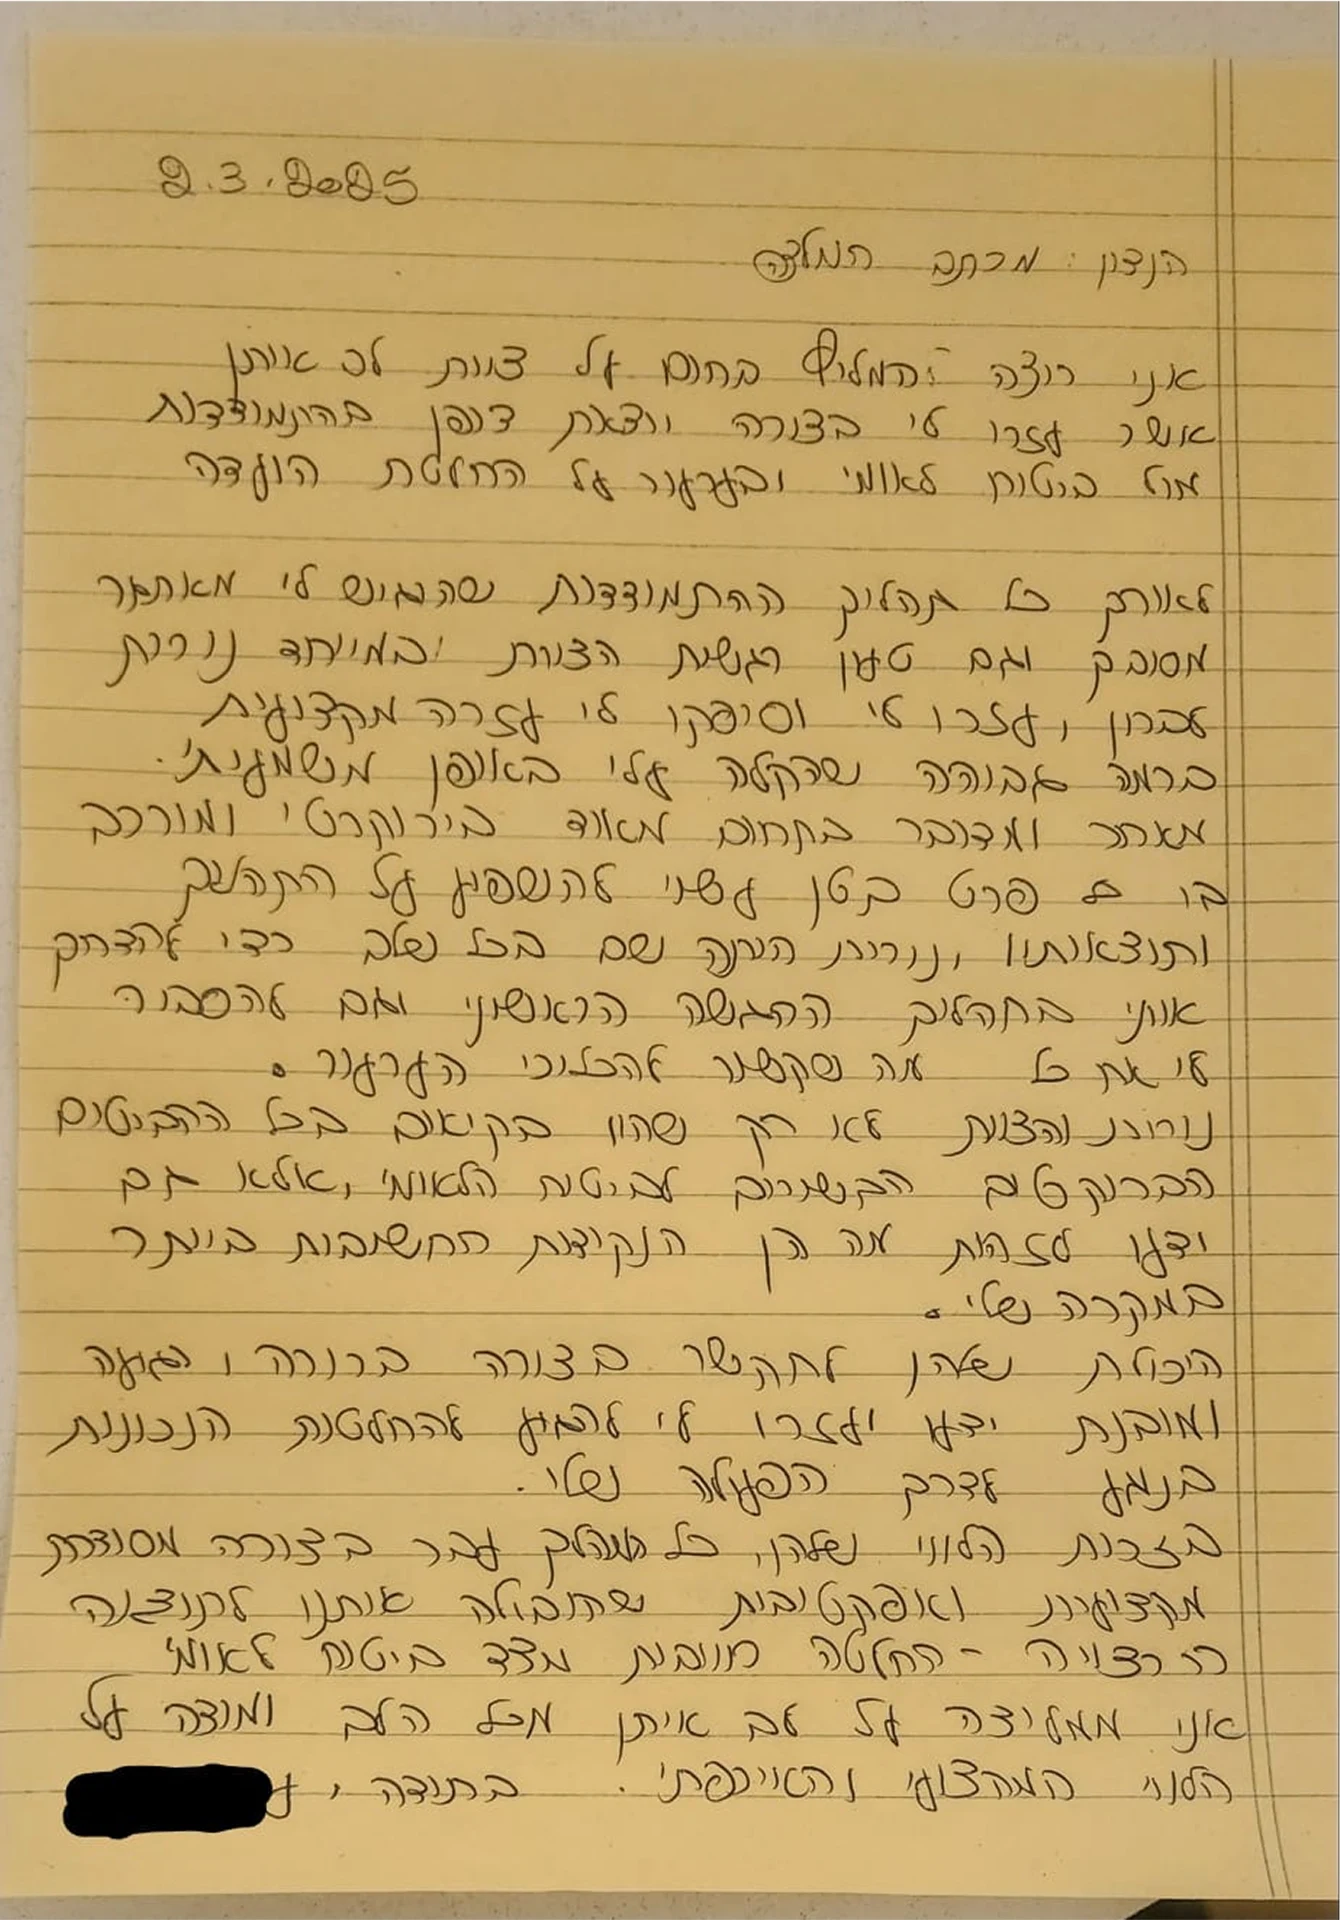 2.3.2025
הנדון: מכתב המלצה
אני רוצה להמליץ בחום על צוות לב איתן
אשר עזרו לי בצורה יוצאת דופן בהתמודדות
מול ביטוח לאומי ובערעור על החלטת הועדה
לאורך כל תהליך ההתמודדות שהרגיש לי מאתגר
מסובך וגם טעון רגשית הצוות ובמייחד נורית
עברון, עזרו לי וסיפקו לי עזרה מקצועית
ברמה גבוהה שהקלה עלי באופן משמעותי.
מאחר ומדובר בתחום מאוד בירוקרטי ומורכב
בו כל פרט קטן עשוי להשפיע על התהליך
ותוצאותיו, נורית היתה שם בכל שלב כדי להדריך
אותי בתהליך ההגשה הראשוני וגם להסביר
לי את כל מה שקשור להכליכי הערעור.
נורית והצוות לא רק שהיו בקיאים בכל ההבטים
הברוקטים הקשורים לביטוח הלאומי, אלא גם
ידעו לזהות מה הן הנקודות החשובות ביותר
במקרה שלי.
היכולת שלהן לתקשר בצורה ברורה, רגועה
ומובנת ידעו ועזרו לי להגיע להחלטות הנכונות
בנוגע לדרך הפעולה שלי.
בזכות הליווי שלהן, כל תהליך עבר בצורה מסודרת
מקצועית ואפקטיבית שהובילה אותנו לתוצאה
הרצויה - החלטה חיובית מצד ביטוח לאומי
אני ממליצה על לב איתן מכל הלב ומודה על
הליווי המקצועי והאיכפתי. בתודה, נ